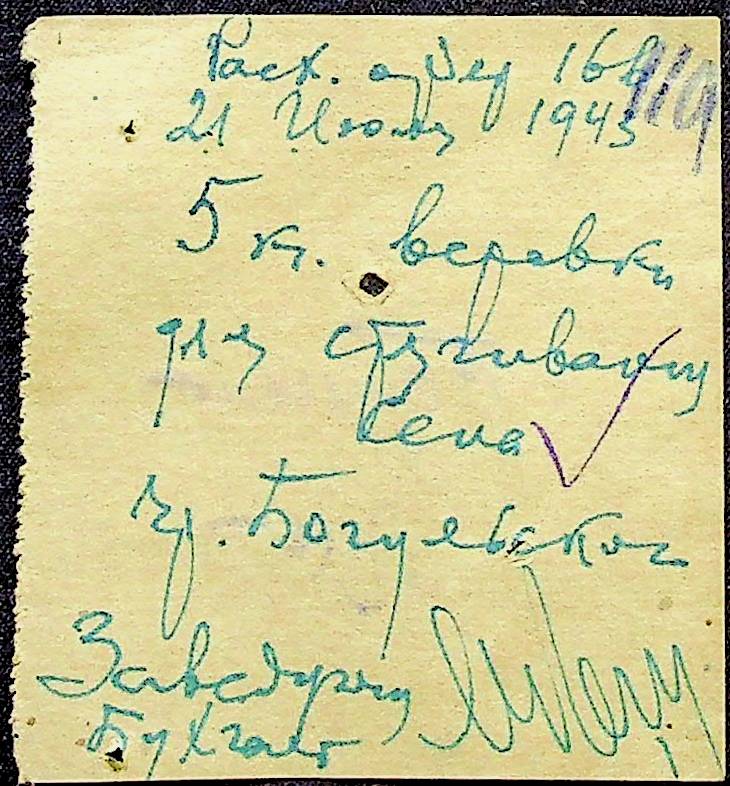 Расх. ордер 168
21 Июля 1943
5 кг. веревки
для стягивания
сена
гр. Богульског
Заведующ
Бухгалт